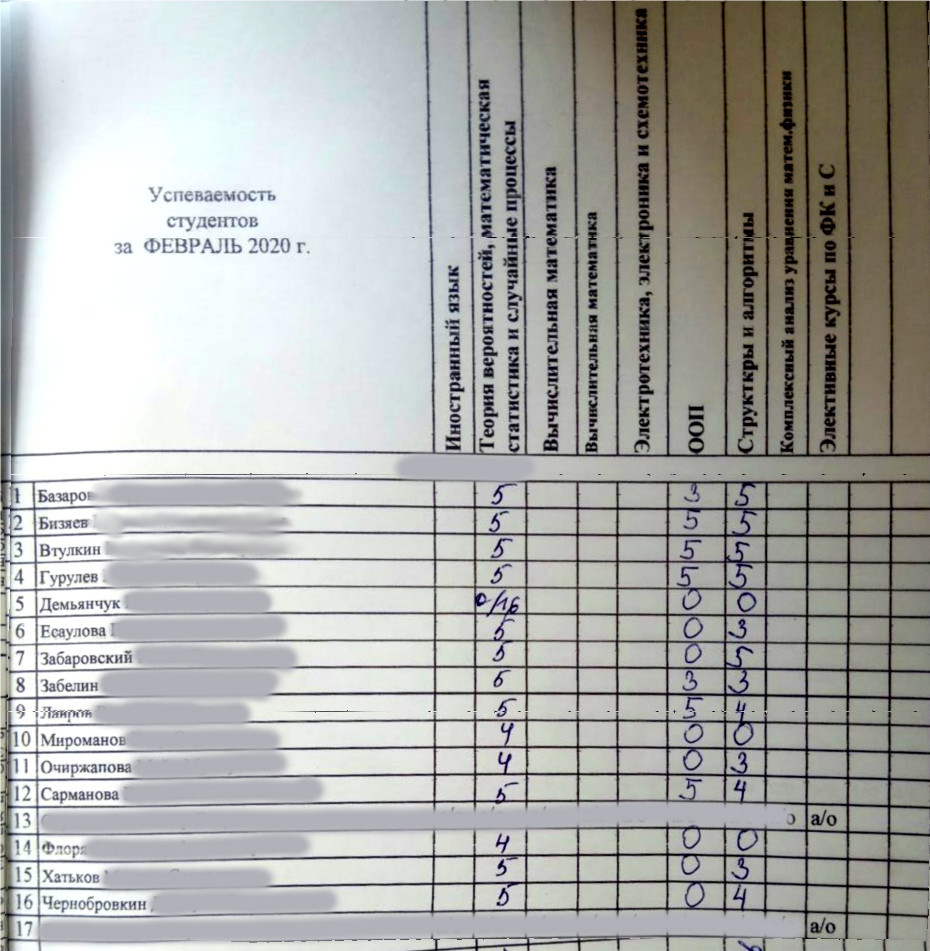 Успеваемость
студентов
за ФЕВРАЛЬ 2020 г.
Иностранный язык
Теория вероятностей, математическая
статистика и случайные процессы
Вычислительная математика
Вычислительная математика
Электротехника, электроника и схемотехника
ООП
Структкры и алгоритмы
Комплексный анализ уравнения матем.физики
Элективные курсы по ФК и С
1 Базаров 5 3 5
2 Бизяев 5 5 5
3 Втулкин 5 5 5
4 Гурулев 5 5 5
5 Демьянчук 0/16 0 0
6 Есаулова 5 0 3
7 Забаровский 5 0 5
8 Забелин 5 3 3
9 5 5 4
10 Мироманов 4 0 0
11 Очиржапова 4 0 3
12 Сарманова 5 5 4
13 а/о
14 4 0 0
15 Хатьков 5 0 3
16 Чернобровкин 5 0 4
17 а/о